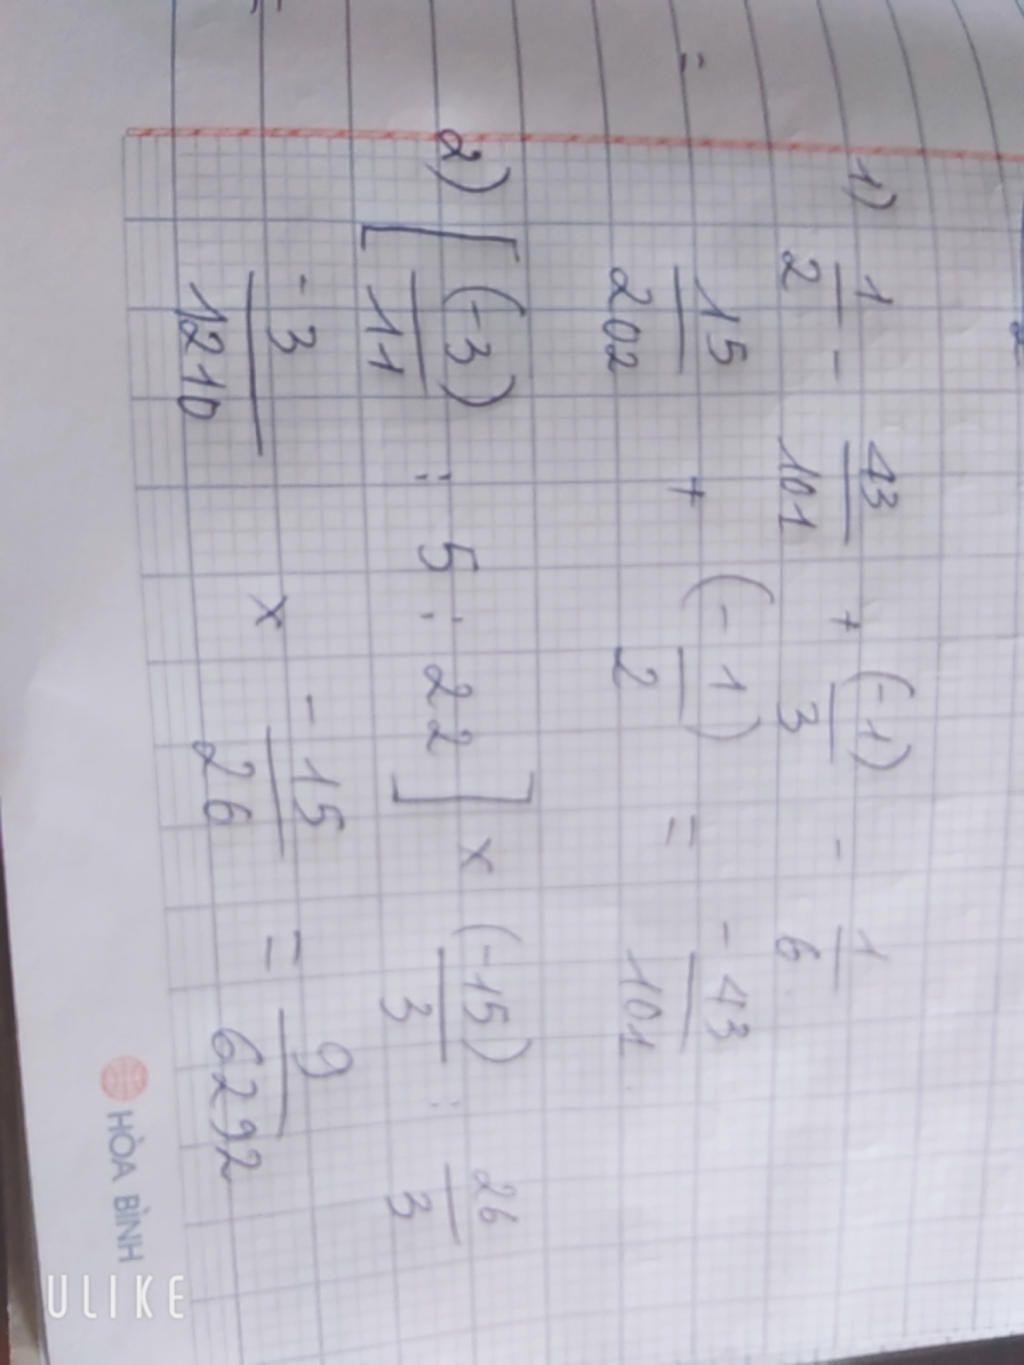 1) 1/2 - 43/101 + (-1)/3 - 1/6
= 15/202 + (-1/2) = -43/101
2) [(-3)/11 : 5 : 22] x (-15)/3 : 26/3
= -3/1210 x -15/26 = 9/6292
HÒA BÌNH
ULIKE